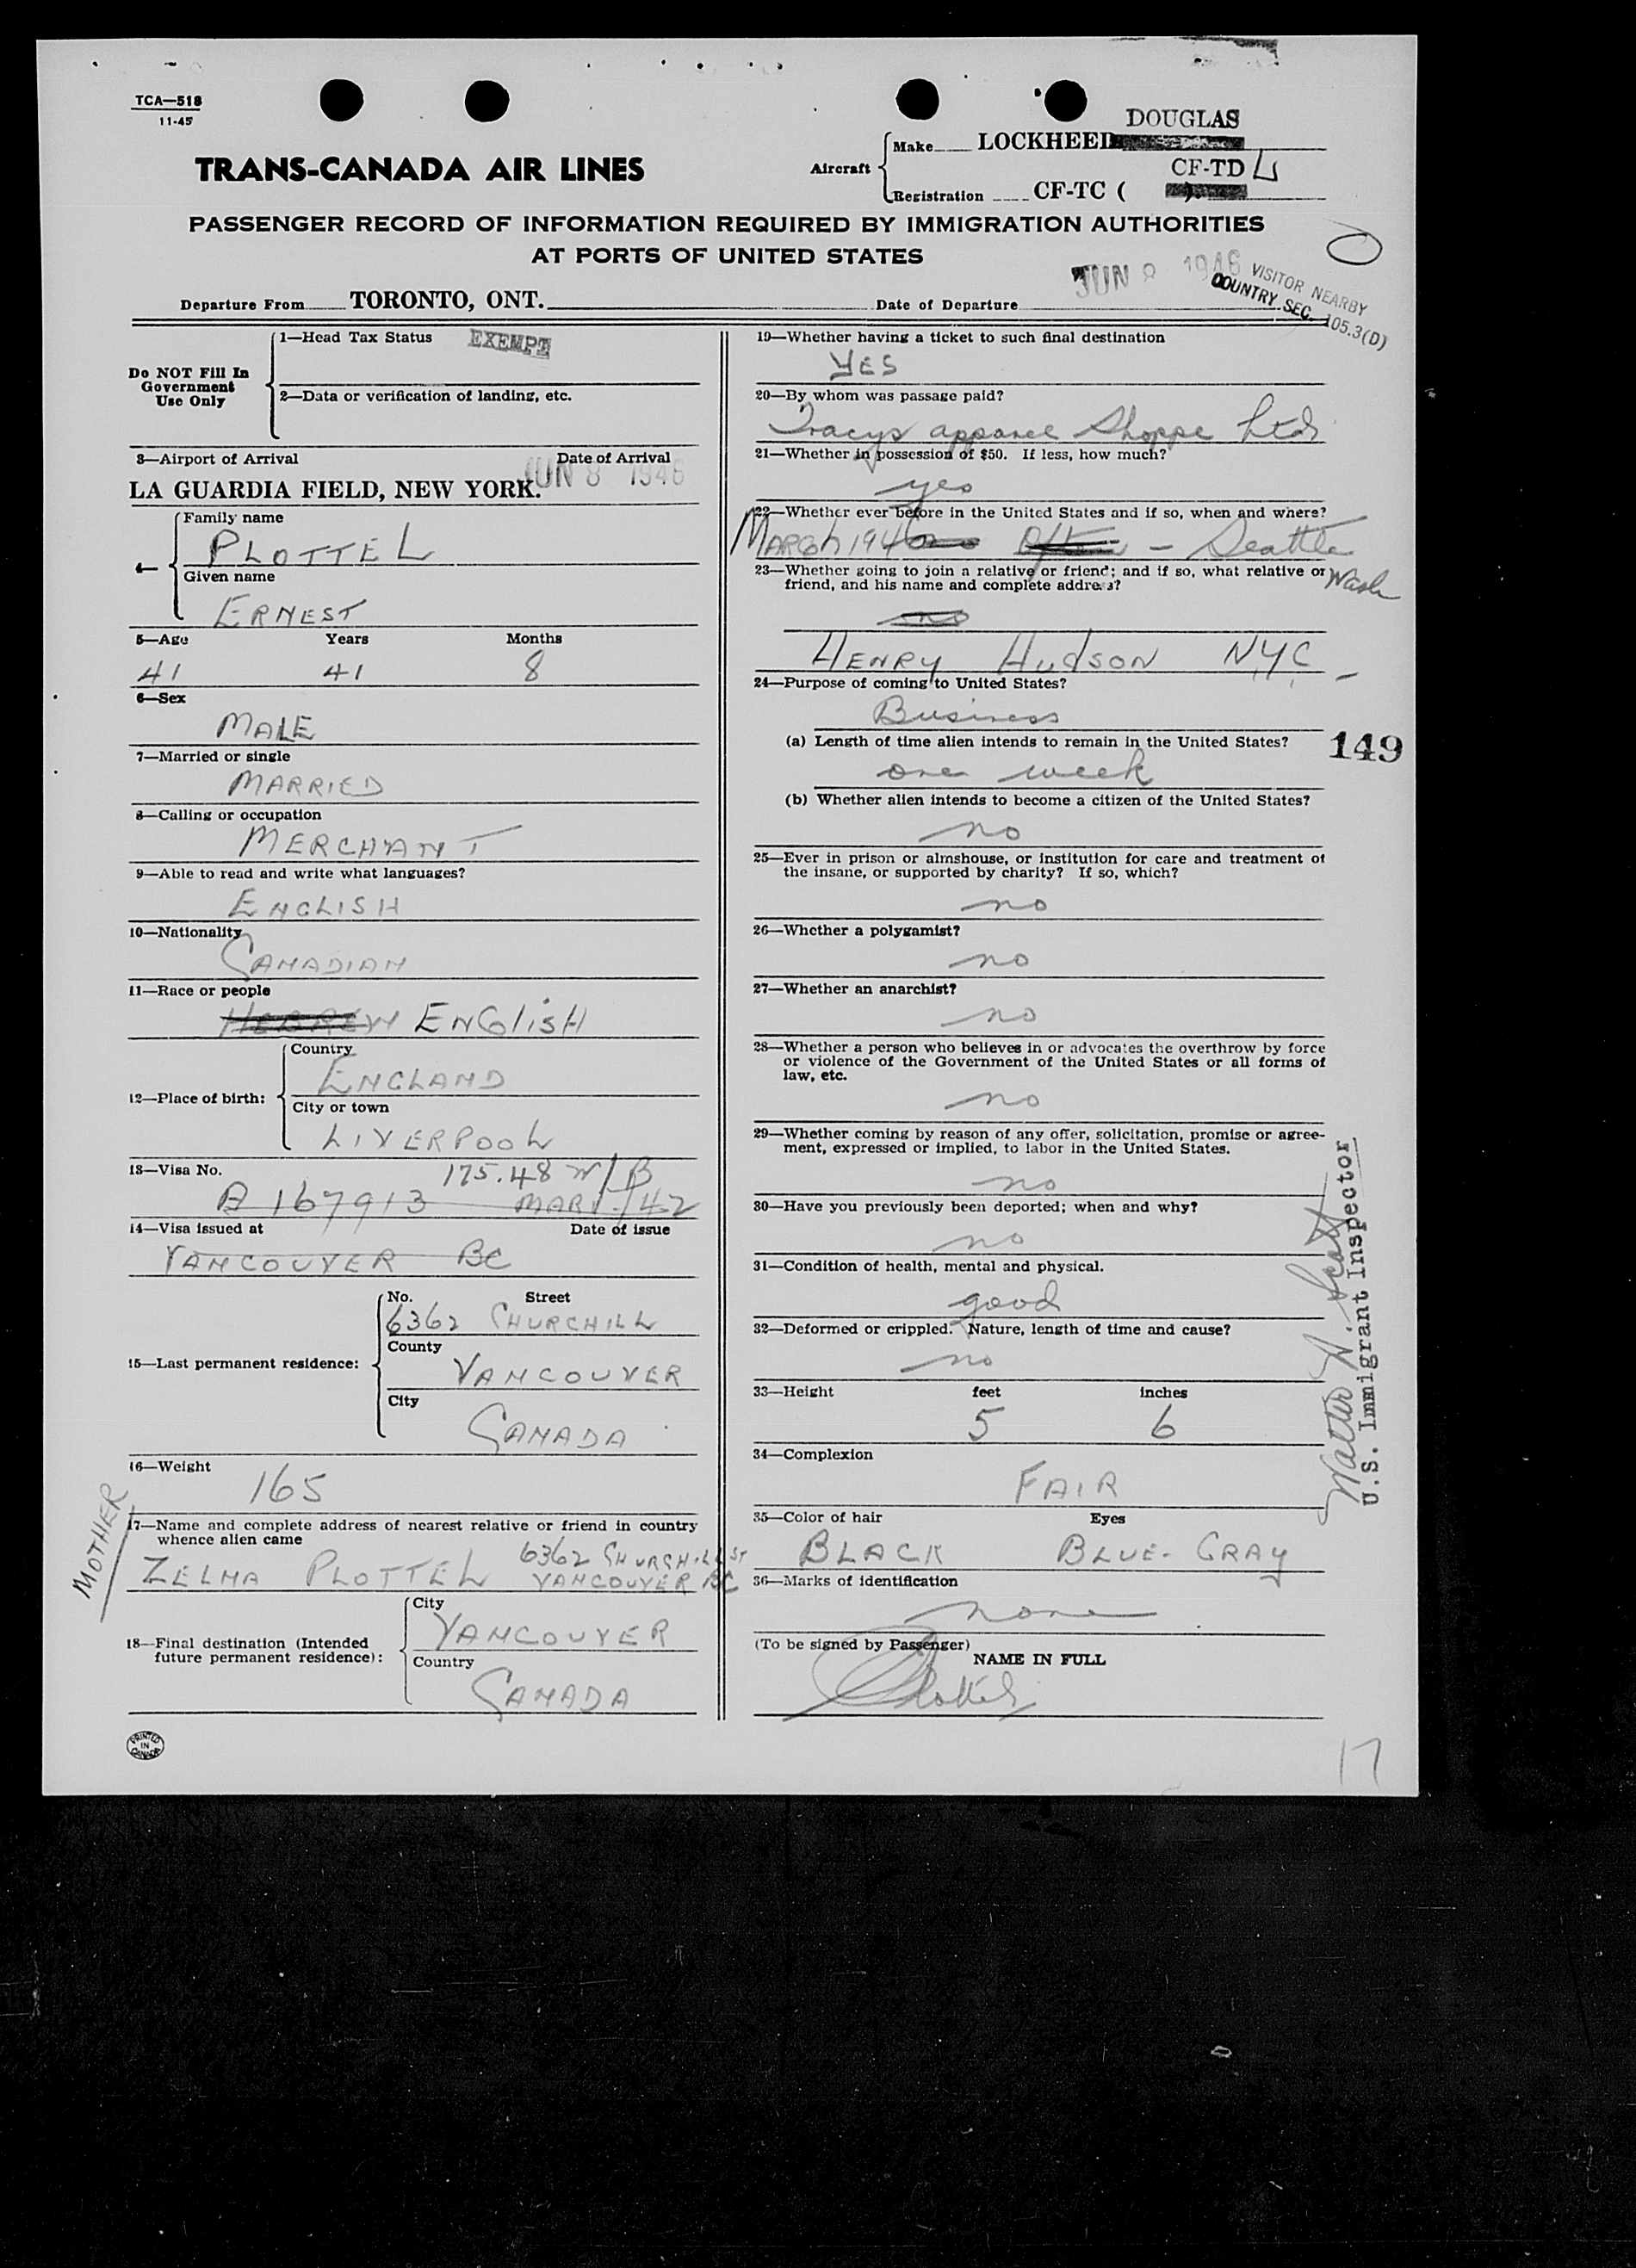 TCA—518
11-45
TRANS-CANADA AIR LINES
Aircraft
Make LOCKHEED DOUGLAS
Registration CF-TC ( CF-TD L
PASSENGER RECORD OF INFORMATION REQUIRED BY IMMIGRATION AUTHORITIES
AT PORTS OF UNITED STATES
Departure From TORONTO, ONT. Date of Departure JUN 8 1946
VISITOR NEARBY
COUNTRY SEC. 105.3(D)
Do NOT Fill In
Government
Use Only
1—Head Tax Status EXEMPT
2—Data or verification of landing, etc.
3—Airport of Arrival Date of Arrival
LA GUARDIA FIELD, NEW YORK. JUN 8 1946
4—
Family name
PLOTTEL
Given name
ERNEST
5—Age Years Months
41 41 8
6—Sex
MALE
7—Married or single
MARRIED
8—Calling or occupation
MERCHANT
9—Able to read and write what languages?
ENGLISH
10—Nationality
CANADIAN
11—Race or people
HEBREW ENGlisH
12—Place of birth:
Country
ENGLAND
City or town
LIVERPOOL
13—Visa No. 175.48 W/B
A 167913 MAR 1/42
14—Visa issued at Date of issue
VANCOUVER BC
15—Last permanent residence:
No. Street
6362 CHURCHILL
County
VANCOUVER
City
CANADA
16—Weight
165
MOTHER
17—Name and complete address of nearest relative or friend in country
whence alien came
ZELMA PLOTTEL 6362 CHURCHILL ST
VANCOUVER BC
18—Final destination (Intended
future permanent residence):
City
VANCOUVER
Country
CANADA
PRINTED
IN
CANADA
19—Whether having a ticket to such final destination
YES
20—By whom was passage paid?
Tracys apparel Shoppe Ltd
21—Whether in possession of $50. If less, how much?
yes
22—Whether ever before in the United States and if so, when and where?
MARCh 1946 Often – Seattle
Wash
23—Whether going to join a relative or friend; and if so, what relative or
friend, and his name and complete address?
no
HENRY HUdSON N.Y.C.
24—Purpose of coming to United States?
Business
(a) Length of time alien intends to remain in the United States?
one week
149
(b) Whether alien intends to become a citizen of the United States?
no
25—Ever in prison or almshouse, or institution for care and treatment of
the insane, or supported by charity? If so, which?
no
26—Whether a polygamist?
no
27—Whether an anarchist?
no
28—Whether a person who believes in or advocates the overthrow by force
or violence of the Government of the United States or all forms of
law, etc.
no
29—Whether coming by reason of any offer, solicitation, promise or agree-
ment, expressed or implied, to labor in the United States.
no
30—Have you previously been deported; when and why?
no
31—Condition of health, mental and physical.
good
32—Deformed or crippled. Nature, length of time and cause?
no
33—Height feet inches
5 6
34—Complexion
FAIR
35—Color of hair Eyes
BLACK BLUE-GRAY
36—Marks of identification
none
(To be signed by Passenger)
NAME IN FULL
Plottel
Walter N. Scott
U.S. Immigrant Inspector
17